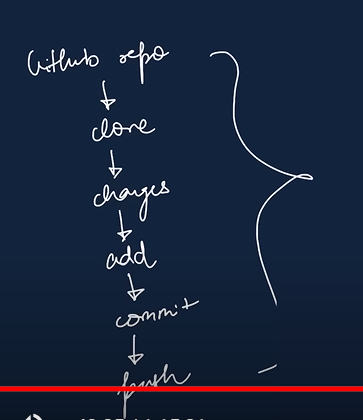 GitHub repo
clone
changes
add
commit
push